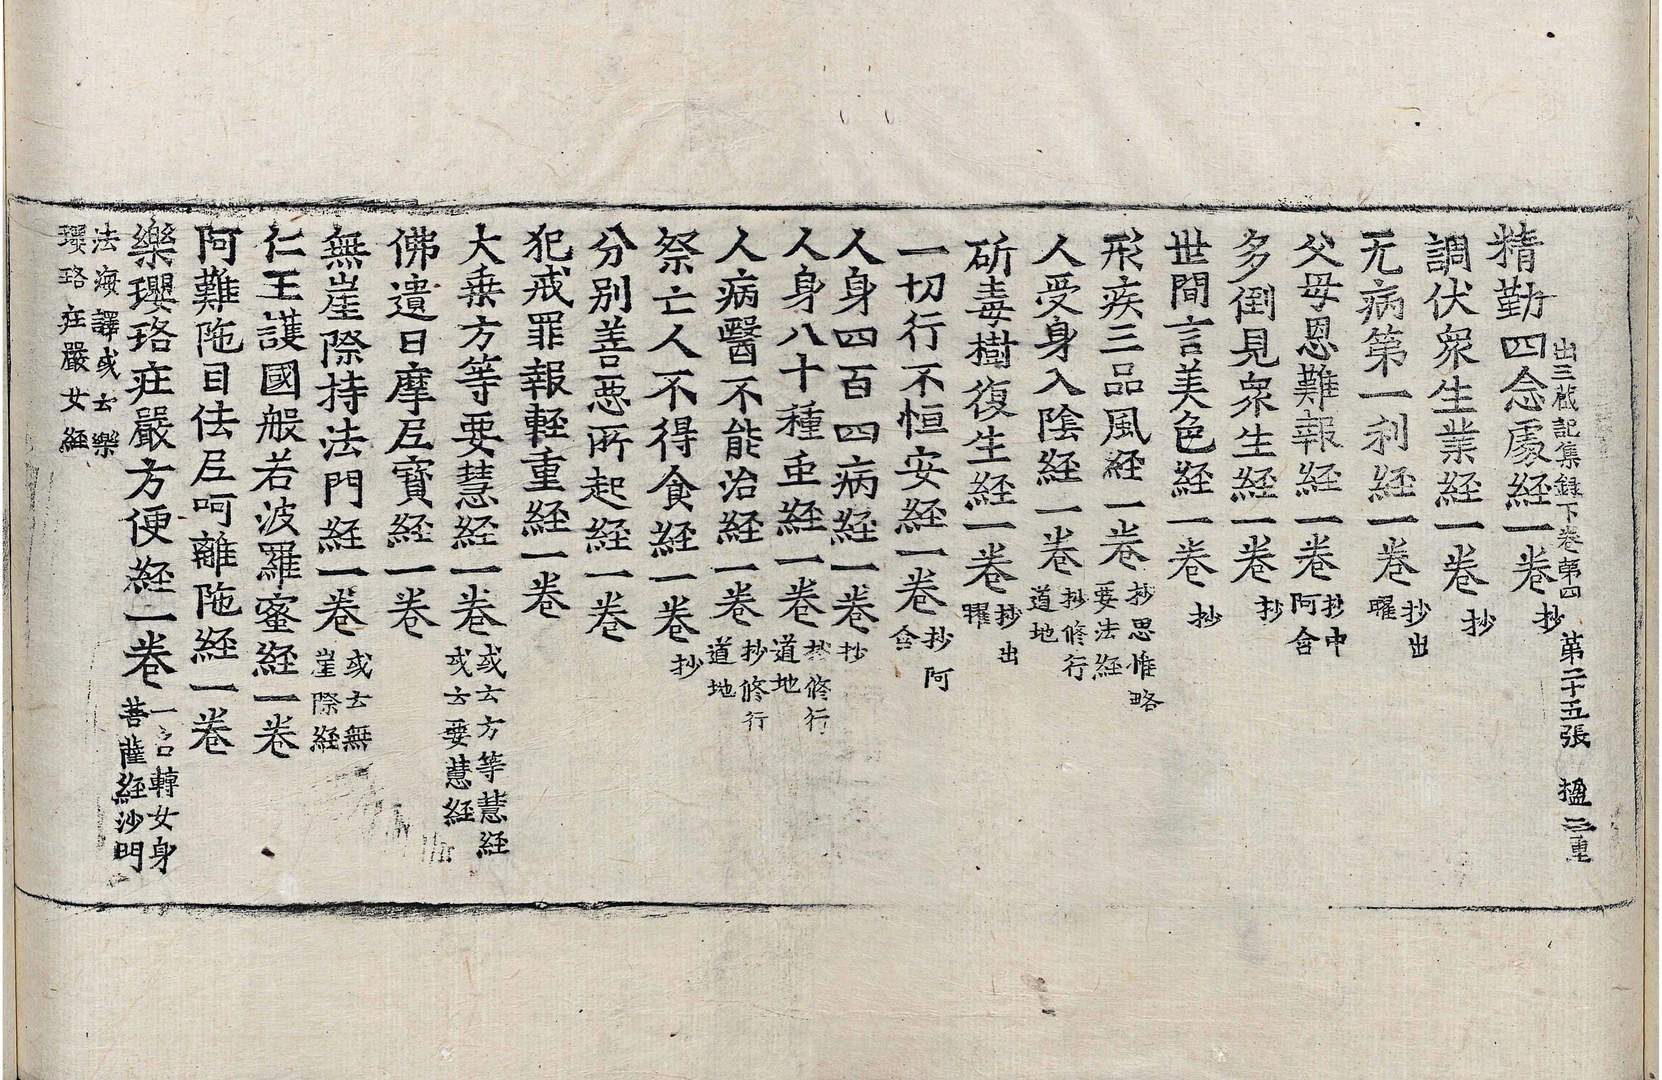 出三藏記集録下卷第四 第二十五張 楹二重
精勤四念處経一卷 抄
調伏衆生業経一卷 抄
无病第一利経一卷 抄出曜
父母恩難報経一卷 抄中阿含
多倒見衆生経一卷 抄
世間言美色経一卷 抄
形疾三品風経一卷 抄思惟略要法経
人受身入陰経一卷 抄修行道地
斫毒樹復生経一卷 抄出曜
一切行不恒安経一卷 抄阿含
人身四百四病経一卷 抄
人身八十種虫経一卷 抄修行道地
人病醫不能治経一卷 抄修行道地
祭亡人不得食経一卷 抄
分別善惡所起経一卷
犯戒罪報輕重経一卷
大乗方等要慧経一卷 或云方等慧経或云要慧経
佛遺日摩尼寳経一卷
無崖際持法門経一卷 或云無崖際経
仁王護國般若波羅蜜経一卷
阿難陁目佉尼呵離陁経一卷
樂瓔珞莊嚴方便経一卷 一名轉女身菩薩経沙門
法海譯或云樂
瓔珞莊嚴女経